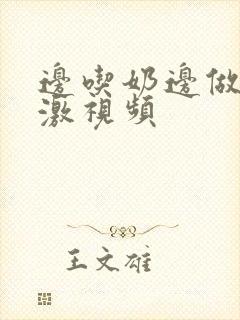 邊喫奶邊做
激視頻
王文雄